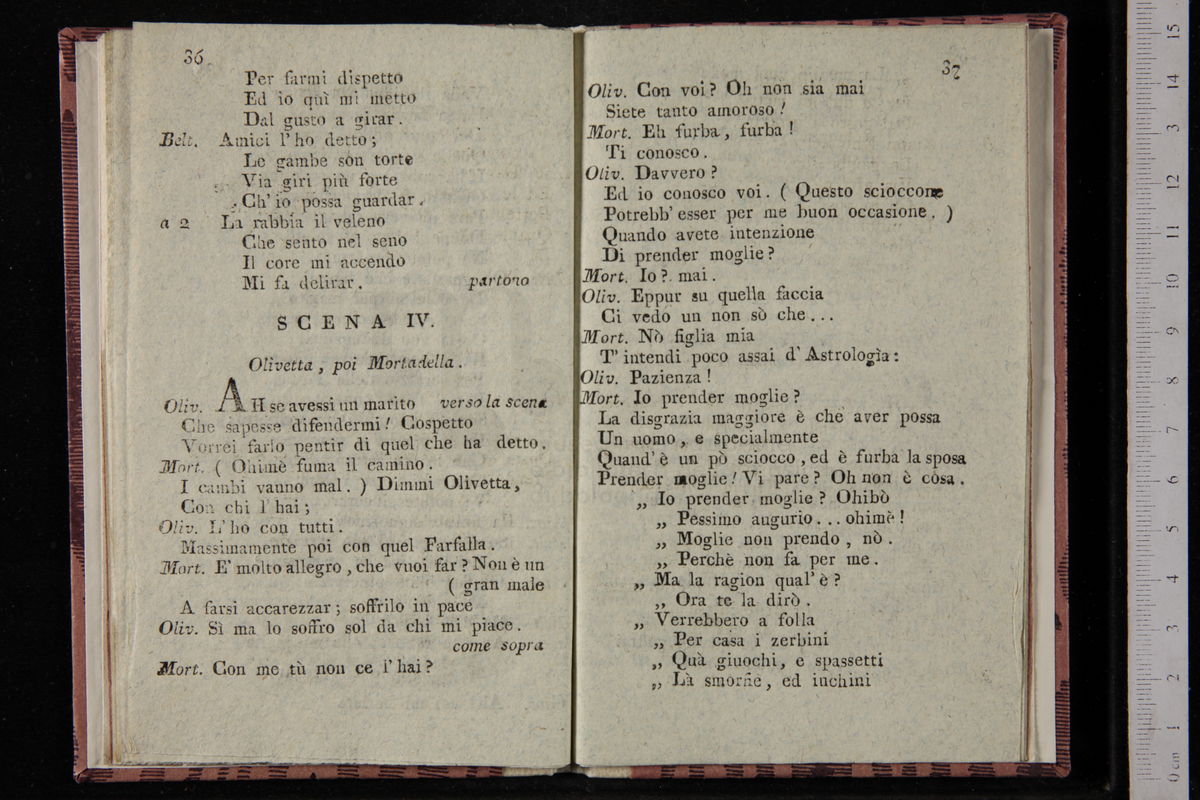 36
Per farmi dispetto
Ed io quì mi metto
Dal gusto a girar.
Belt. Amici l'ho detto;
Le gambe son torte
Via giri più forte
Ch'io possa guardar.
a 2 La rabbia il veleno
Che sento nel seno
Il core mi accendo
Mi fa delirar. partono
SCENA IV.
Olivetta, poi Mortadella.
Oliv. AH se avessi un marito verso la scena
Che sapesse difendermi! Cospetto
Vorrei farlo pentir di quel che ha detto.
Mort. ( Ohimè fuma il camino.
I cambi vanno mal. ) Dimmi Olivetta,
Con chi l'hai;
Oliv. L'ho con tutti.
Massimamente poi con quel Farfalla.
Mort. E' molto allegro, che vuoi far? Non è un
( gran male
A farsi accarezzar; soffrilo in pace
Oliv. Sì ma lo soffro sol da chi mi piace.
come sopra
Mort. Con me tù non ce l'hai?
37
Oliv. Con voi? Oh non sia mai
Siete tanto amoroso!
Mort. Eh furba, furba!
Ti conosco.
Oliv. Davvero?
Ed io conosco voi. ( Questo scioccone
Potrebb'esser per me buon occasione. )
Quando avete intenzione
Di prender moglie?
Mort. Io? mai.
Oliv. Eppur su quella faccia
Ci vedo un non sò che...
Mort. Nò figlia mia
T'intendi poco assai d'Astrologìa:
Oliv. Pazienza!
Mort. Io prender moglie?
La disgrazia maggiore è che aver possa
Un uomo, e specialmente
Quand'è un pò sciocco, ed è furba la sposa
Prender moglie! Vi pare? Oh non è cosa.
„ Io prender moglie? Ohibò
„ Pessimo augurio... ohimè!
„ Moglie non prendo, nò.
„ Perchè non fa per me.
„ Ma la ragion qual'è?
„ Ora te la dirò.
„ Verrebbero a folla
„ Per casa i zerbini
„ Quà giuochi, e spassetti
„ Là smorfie, ed inchini
0 cm 1 2 3 4 5 6 7 8 9 10 11 12 13 14 15